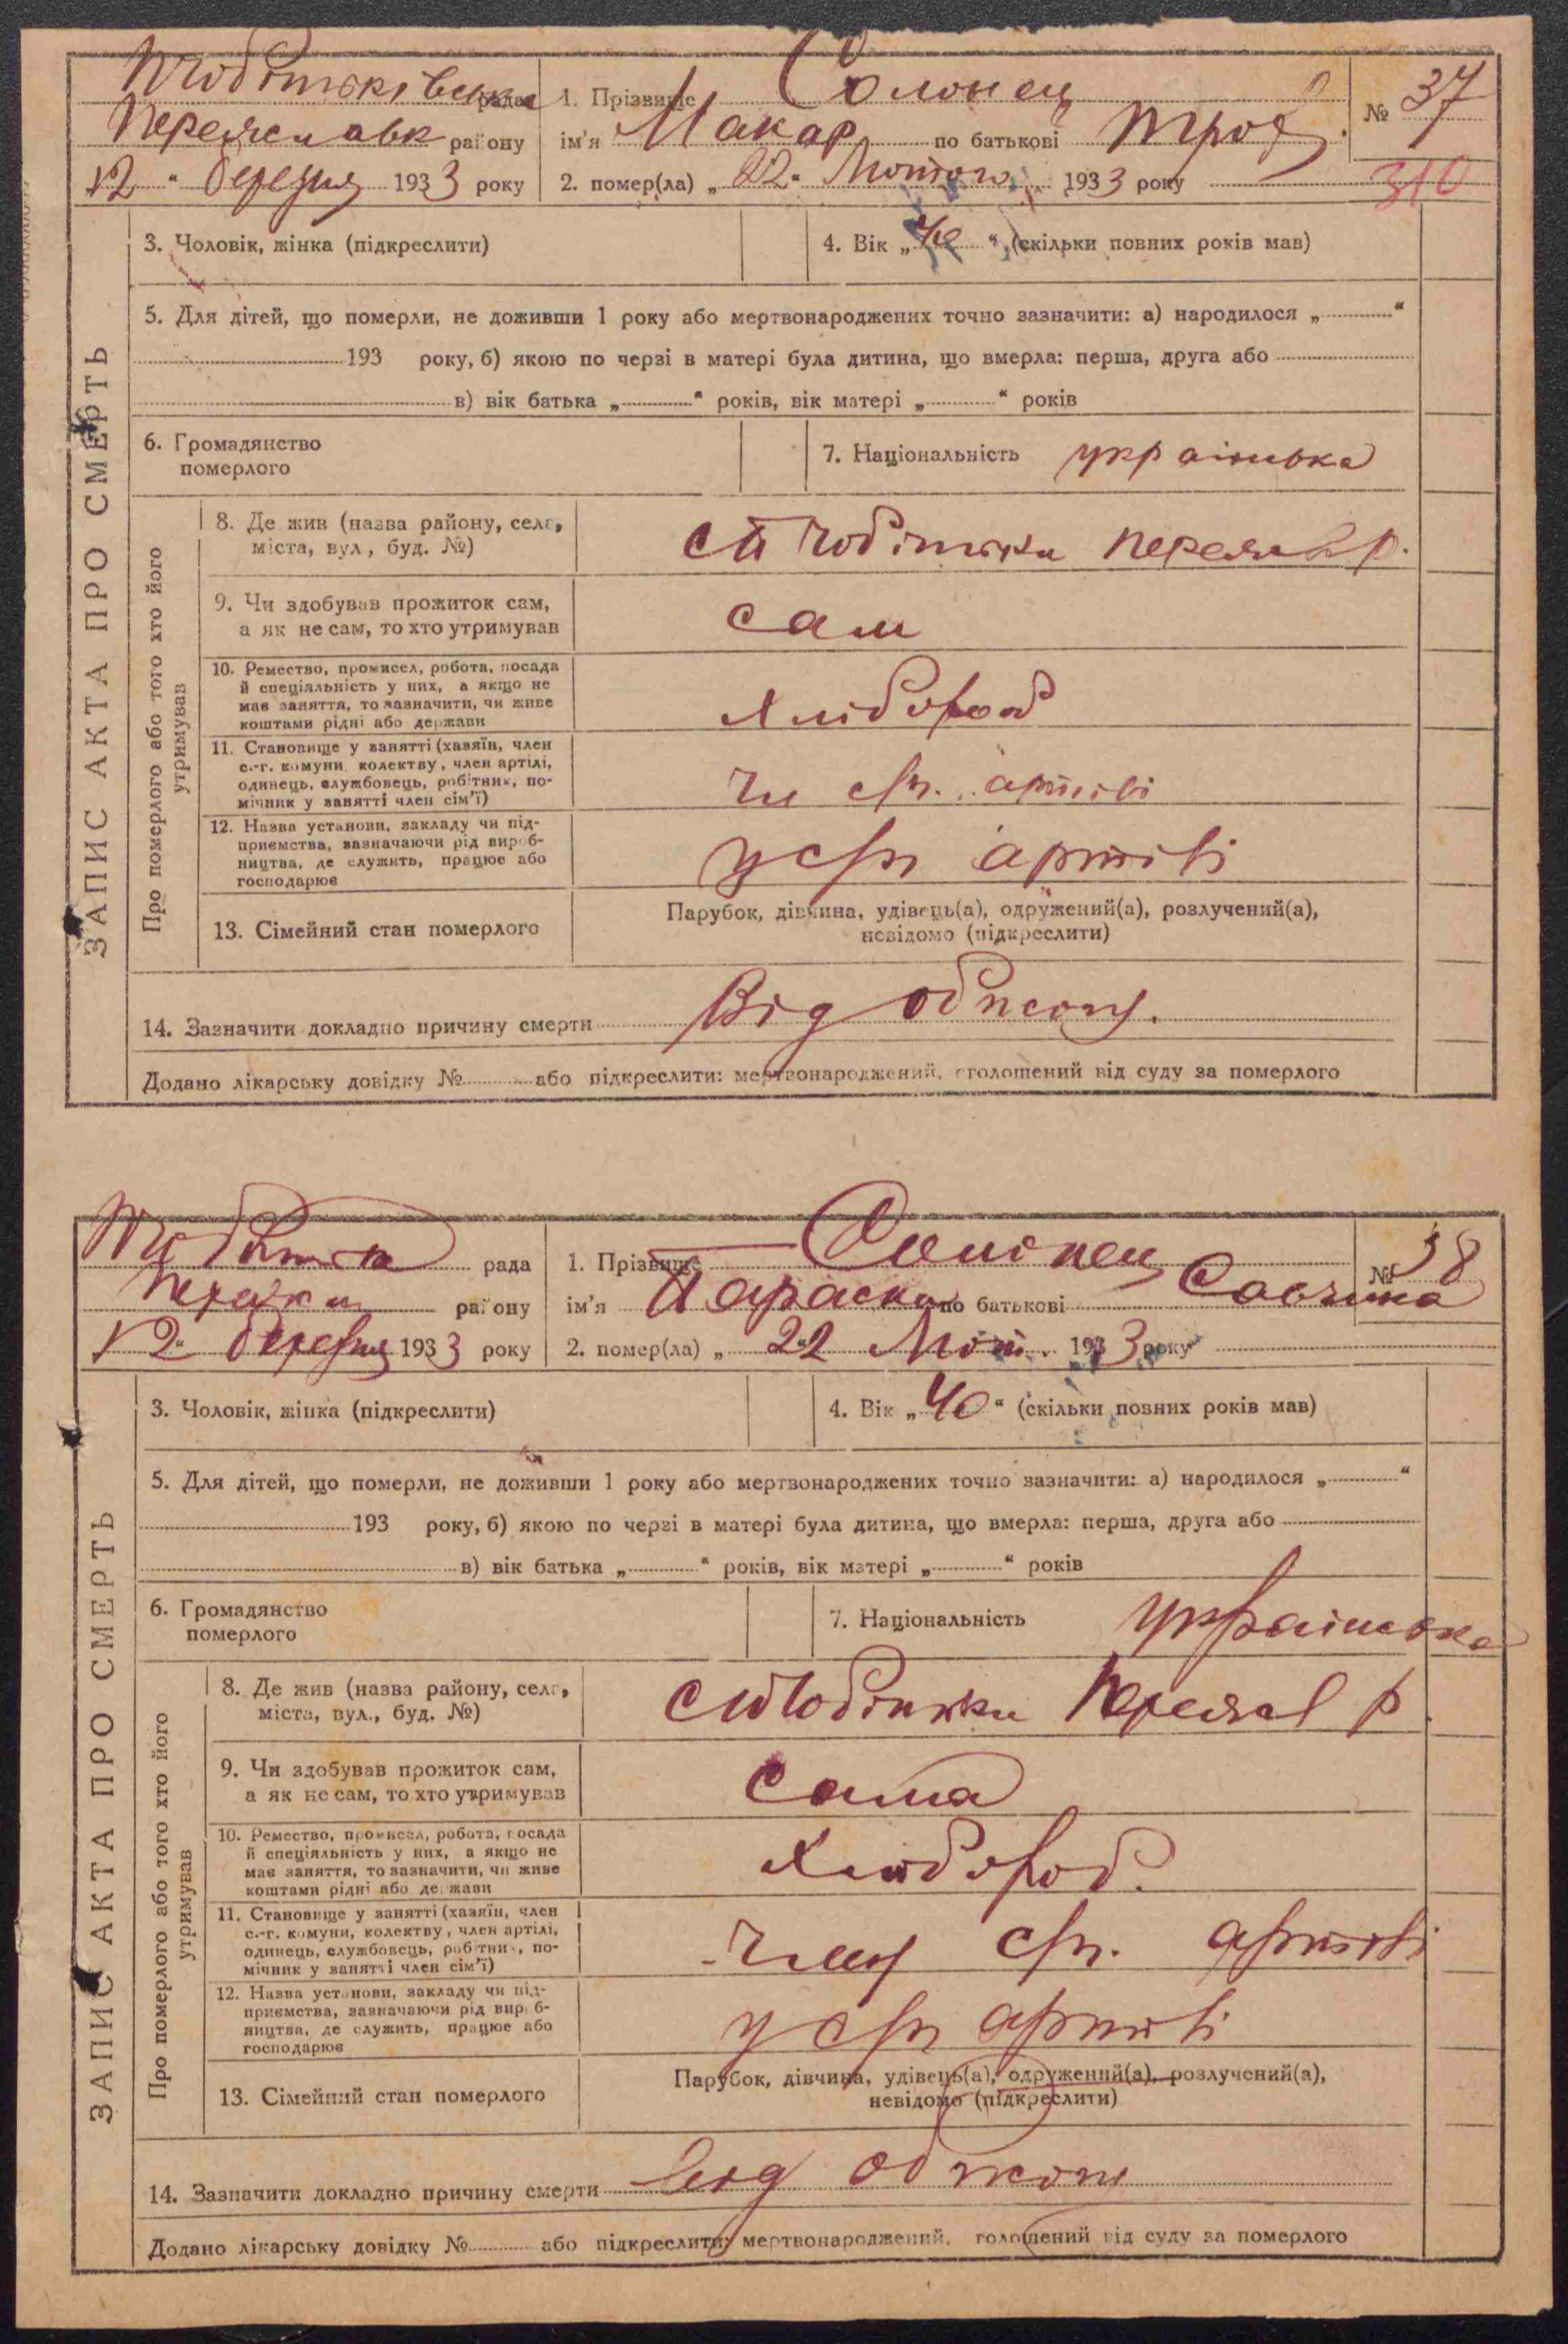 рада 1. Прізвище Солонец № 37
Переяславк району ім'я Макар по батькові Троф.
12 " березня 1933 року 2. помер(ла) „ 22 " Лютого 1933 року 310
3. Чоловік, жінка (підкреслити) 4. Вік „ " (скільки повних років мав)
5. Для дітей, що померли, не доживши 1 року або мертвонароджених точно зазначити: а) народилося „ "
193 року, б) якою по черзі в матері була дитина, що вмерла: перша, друга або
в) вік батька „ " років, вік матері „ " років
6. Громадянство
померлого
7. Національність українська
8. Де жив (назва району, села,
міста, вул., буд. №)
ст Чобітьки Переяс р.
9. Чи здобував прожиток сам,
а як не сам, то хто утримував
сам
10. Ремество, промисел, робота, посада
й спеціяльність у них, а якщо не
має заняття, то зазначити, чи живе
коштами рідні або держави
Хлібороб
11. Становище у занятті (хазяїн, член
с.-г. комуни, колектву, член артілі,
одинець, службовець, робітник, по-
мічник у занятті член сім'ї)
чл артілі
12. Назва установи, закладу чи під-
приємства, зазначаючи рід вироб-
ництва, де служить, працює або
господарює
у артілі
13. Сімейний стан померлого
Парубок, дівчина, удівець(а), одружений(а), розлучений(а),
невідомо (підкреслити)
14. Зазначити докладно причину смерти Від опіком.
Додано лікарську довідку № або підкреслити: мертвонароджений, оголошений від суду за померлого
ЗАПИС АКТА ПРО СМЕРТЬ
Про померлого або того хто його
утримував
рада 1. Прізвище Солонец № 38
району ім'я Параска по батькові Савчина
12 " березня 1933 року 2. помер(ла) „ 22 " Лют. 1933 року
3. Чоловік, жінка (підкреслити) 4. Вік „ 40 " (скільки повних років мав)
5. Для дітей, що померли, не доживши 1 року або мертвонароджених точно зазначити: а) народилося „ "
193 року, б) якою по черзі в матері була дитина, що вмерла: перша, друга або
в) вік батька „ " років, вік матері „ " років
6. Громадянство
померлого
7. Національність українська
8. Де жив (назва району, села,
міста, вул., буд. №)
Переяс р
9. Чи здобував прожиток сам,
а як не сам, то хто утримував
сама
10. Ремество, промисел, робота, посада
й спеціяльність у них, а якщо не
має заняття, то зазначити, чи живе
коштами рідні або держави
Хлібороб.
11. Становище у занятті (хазяїн, член
с.-г. комуни, колектву, член артілі,
одинець, службовець, робітник, по-
мічник у занятті член сім'ї)
член артілі
12. Назва установи, закладу чи під-
приємства, зазначаючи рід вироб-
ництва, де служить, працює або
господарює
у артілі
13. Сімейний стан померлого
Парубок, дівчина, удівець(а), одружений(а), розлучений(а),
невідомо (підкреслити)
14. Зазначити докладно причину смерти
Додано лікарську довідку № або підкреслити: мертвонароджений,голошений від суду за померлого
ЗАПИС АКТА ПРО СМЕРТЬ
Про померлого або того хто його
утримував